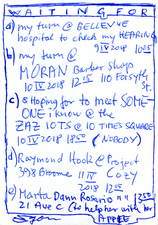 WAITING FOR
a) my turn @ BELLEVUE
hospital to check my HEARING
9 IV 2018 1025
b) my turn @
MORAN Barber Shop
10 IV 2018 1215 110 Forsyth St.
c) Hoping for to meet SOME
ONE i know @ the
ZAZ 10 TS @ 10 TIMES SQUARE
10 IV 2018 1855 (NOBODY)
d) Raymond Hook @ Project
39 E Broome 11 IV Cozy
2018 12
e) Marta Dann Rosario "" 1350
21 Ave C (to help her with her
APPLE